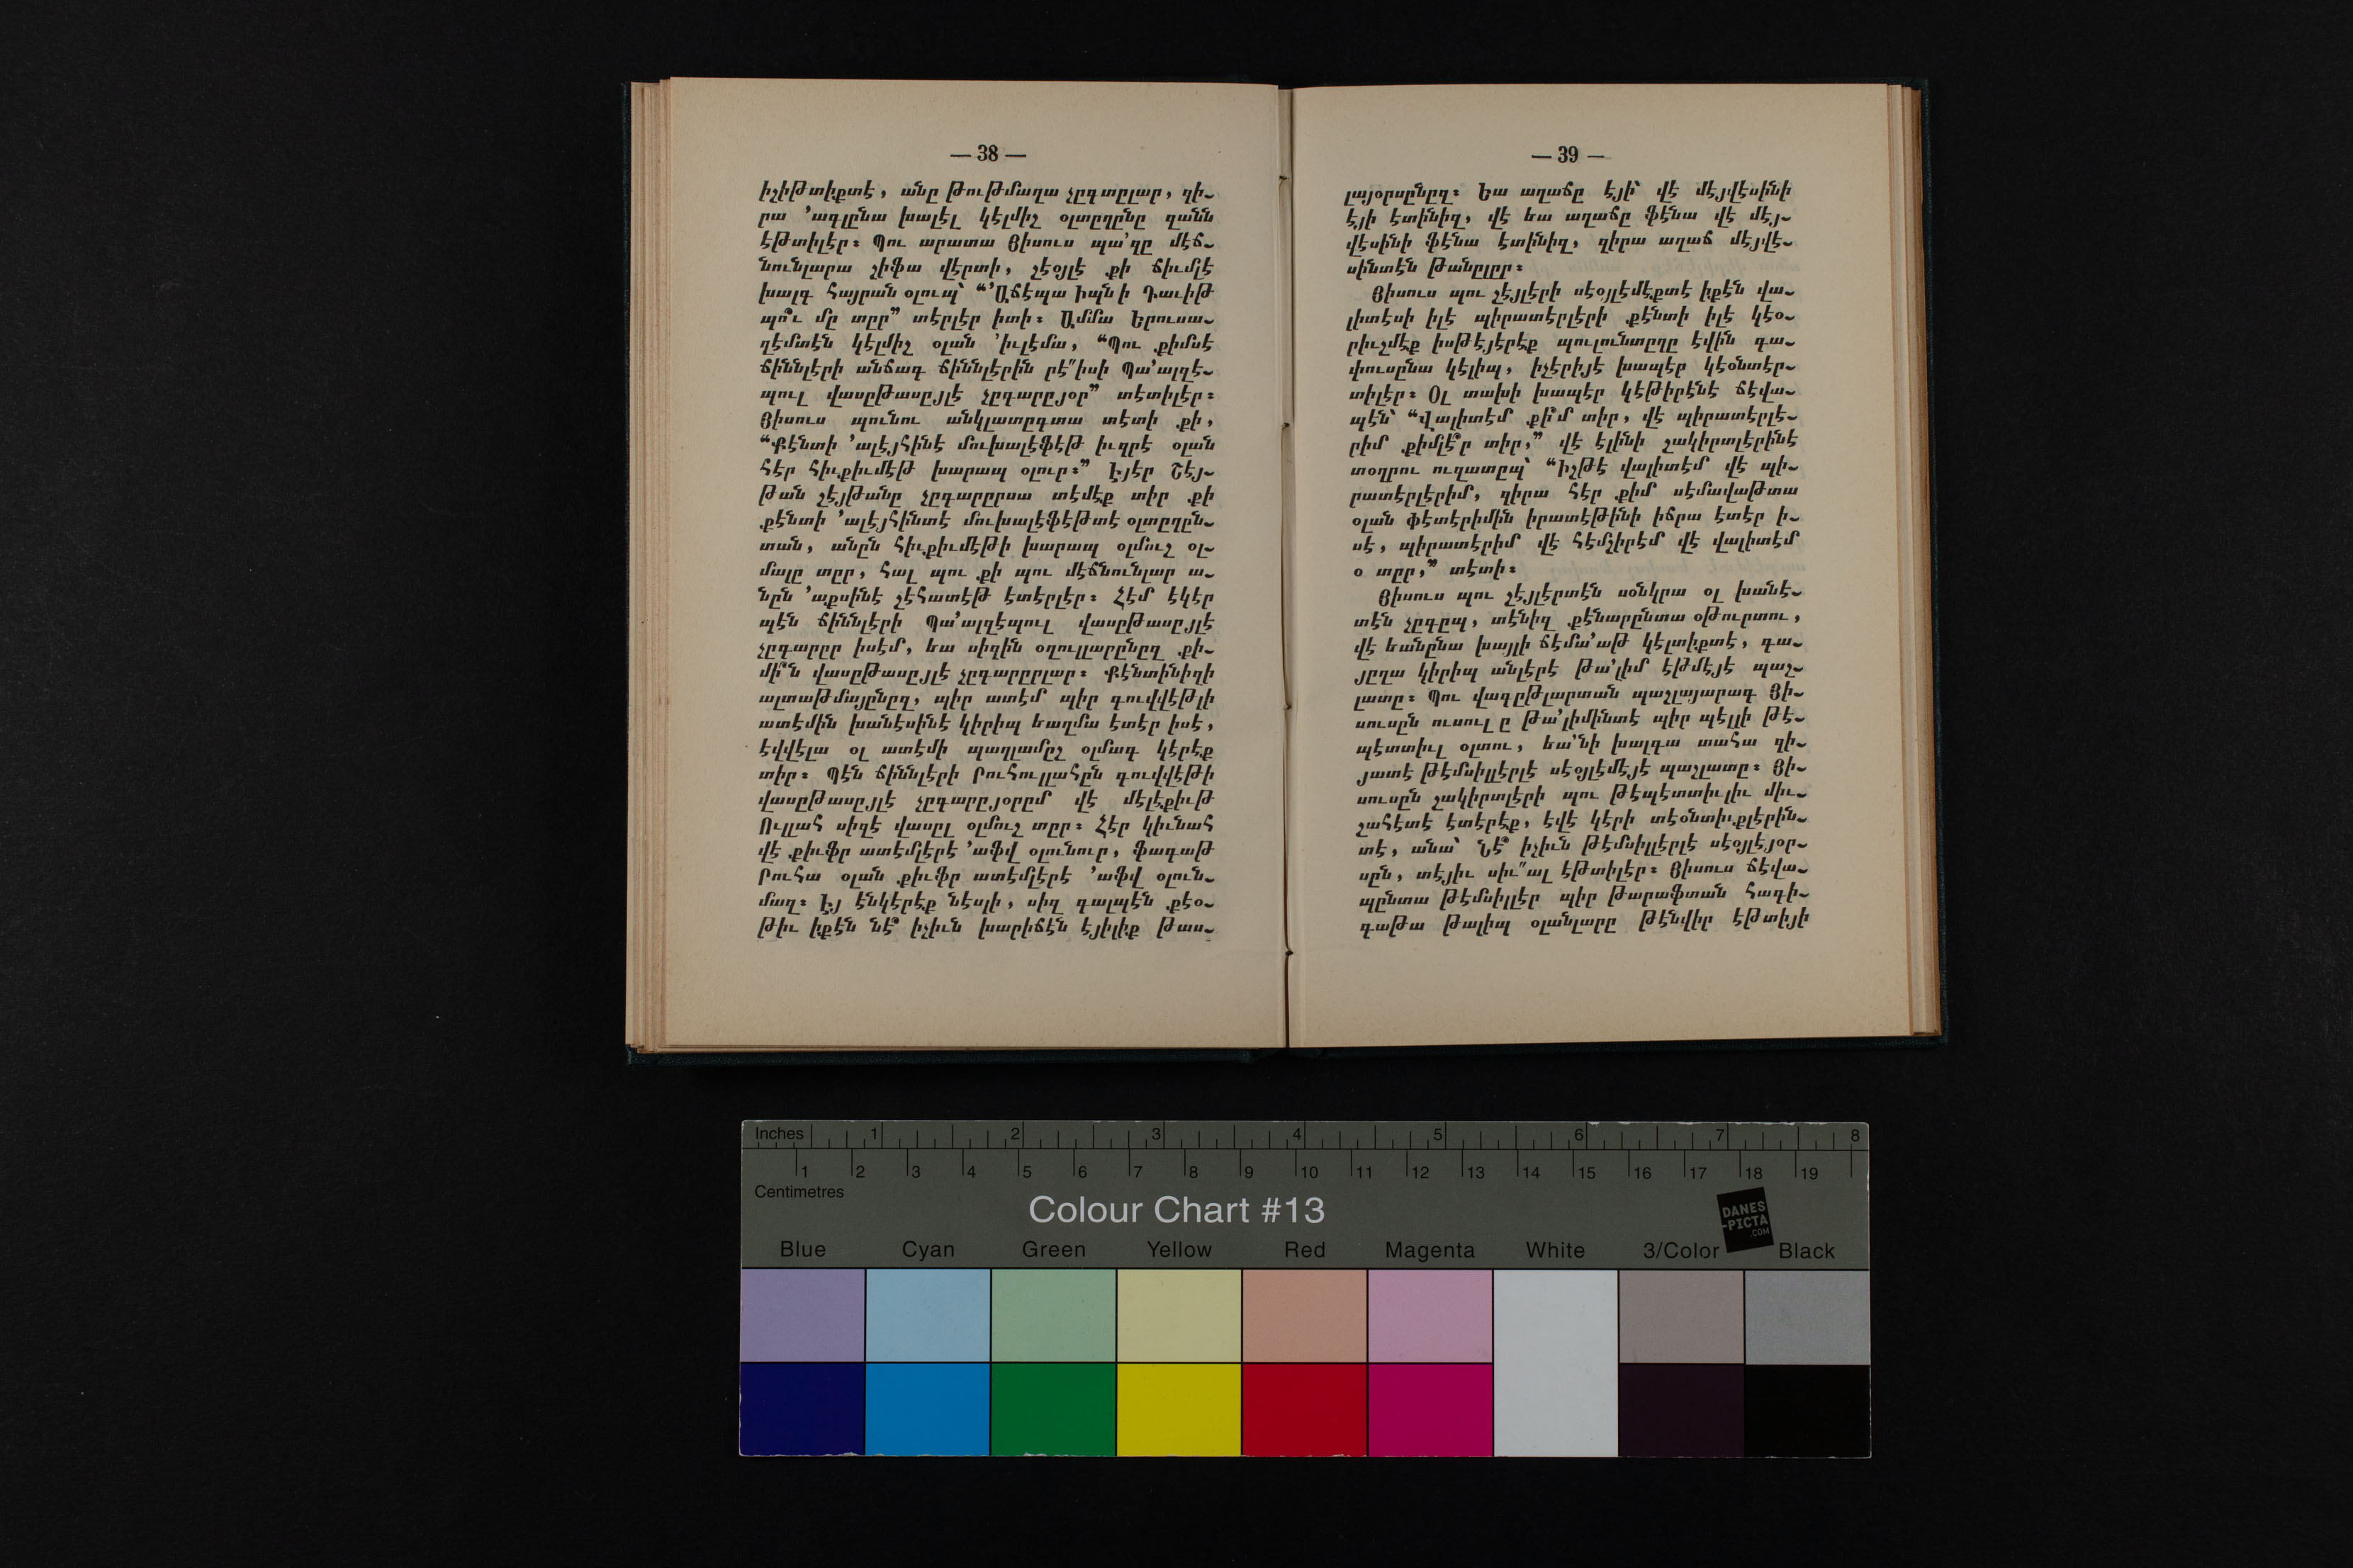 — 38 —
իշիթտիքտէ, անը թութմաղա չըգտըլար, զի֊
րա ՚ագլընա խալէլ կէլմիշ օլտըղընը զանն
էթտիլէր։ Պու արատա Յիսուս պա՚զը մէճ֊
նունլարա շիֆա վէրտի, շէօյլէ քի ճիւմլէ
խալգ հայրան օլուպ՝ “՚Աճէպա Իպն ի Դաւիթ
պո՞ւ մը տըր” տէրլէր իտի։ Ամմա Երուսա֊
ղէմտէն կէլմիշ օլան ՚իւլէմա, “Պու քիմսէ
ճիննլէրի անճագ ճիննլէրին րէ՛՛իսի Պա՚ալզէ֊
պուլ վասըթասըյլէ չըգարըյօր” տէտիլէր։
Յիսուս պունու անկլատըգտա տէտի քի,
“Քէնտի ՚ալէյհինէ մուխալէֆէթ իւզրէ օլան
հէր հիւքիւմէթ խարապ օլուր։” Էյէր Շէյ֊
թան շէյթանը չըգարըրսա տէմէք տիր քի
քէնտի ՚ալէյհինտէ մուխալէֆէթտէ օլտըղըն֊
տան, անըն հիւքիւմէթի խարապ օլմուշ օլ֊
մալը տըր, հալ պու քի պու մէճնունլար ա֊
նըն ՚աքսինէ շէհատէթ էտէրլէր։ Հէմ էկէր
պէն ճիննլէրի Պա՚ալզէպուլ վասըթասըյլէ
չըգարըր իսէմ, եա սիզին օղուլլարընըզ քի֊
մի՞ն վասըթասըյլէ չըգարըրլար։ Քէնտինիզի
ալտաթմայընըզ, պիր ատէմ պիր գուվվէթլի
ատէմին խանէսինէ կիրիպ եաղմա էտէր իսէ,
էվվէլա օլ ատէմի պաղլամըշ օլմագ կէրէք
տիր։ Պէն ճիննլէրի Րուհուլլահըն գուվվէթի
վասըթասըյլէ չըգարըյօրըմ վէ մէլէքիւթ
Ուլլահ սիզէ վասըլ օլմուշ տըր։ Հէր կիւնահ
վէ քիւֆր ատէմլէրէ ՚աֆվ օլունուր, ֆագաթ
Րուհա օլան քիւֆր ատէմլէրէ ՚աֆվ օլուն֊
մազ։ Էյ էնկէրէք նէսլի, սիզ գալպէն քէօ֊
թիւ իքէն նէ՞ իչիւն խարիճէն էյիլիք թաս֊
— 39 —
լայօրսընըզ։ Եա աղաճը էյի՝ վէ մէյվէսինի
էյի էտինիզ, վէ եա աղաճը ֆէնա վէ մէյ֊
վէսինի ֆէնա էտինիզ, զիրա աղաճ մէյվէ֊
սինտէն թանըլըր։
Յիսուս պու շէյլէրի սէօյլէմէքտէ իքէն վա֊
լիտէսի իլէ պիրատէրլէրի քէնտի իլէ կէօ֊
րիւշմէք իսթէյէրէք պուլունտըղը էվին գա֊
փուսընա կէլիպ, իչէրիյէ խապէր կէօնտէր֊
տիլէր։ Օլ տախի խապէր կէթիրէնէ ճէվա֊
պէն՝ “Վալիտէմ քի՞մ տիր, վէ պիրատէրլէ֊
րիմ քիմլէ՞ր տիր,” վէ էլինի շակիրտլէրինէ
տօղրու ուզատըպ՝ “Իշթէ վալիտէմ վէ պի֊
րատէրլէրիմ, զիրա հէր քիմ սէմավաթտա
օլան ֆէտէրիմին իրատէթինի իճրա էտէր ի֊
սէ, պիրատէրիմ վէ հէմշիրէմ վէ վալիտէմ
օ տըր,” տէտի։
Յիսուս պու շէյլէրտէն սօնկրա օլ խանէ֊
տէն չըգըպ, տէնիզ քէնարընտա օթուրտու,
վէ եանընա խայլի ճէմա՚աթ կէլտիքտէ, գա֊
յըղա կիրիպ անլէրէ թա՚լիմ էթմէյէ պաշ֊
լատը։ Պու վագըթլարտան պաշլայարագ Յի֊
սուսըն ուսուլ ը թա՚լիմինտէ պիր պէլլի թէ֊
պէտտիւլ օլտու, եա՚նի խալգա տահա զի֊
յատէ թէմսիլլէրլէ սէօյլէմէյէ պաշլատը։ Յի֊
սուսըն շակիրտլէրի պու թէպէտտիւլիւ միւ֊
շահէտէ էտէրէք, էվէ կէրի տէօնտիւքլէրին֊
տէ, անա՝ Նէ՞ իչիւն թէմսիլլէրլէ սէօյլէյօր֊
սըն, տէյիւ սիւ՛՛ալ էթտիլէր։ Յիսուս ճէվա֊
պընտա թէմսիլլէր պիր թարաֆտան հագի֊
գաթա թալիպ օլանլարը թէնվիր էթտիյի
Inches 1 2 3 4 5 6 7 8
1 2 3 4 5 6 7 8 9 10 11 12 13 14 15 16 17 18 19
Centimetres
Colour Chart #13
DANES
-PICTA
.COM
Blue Cyan Green Yellow Red Magenta White 3/Color Black